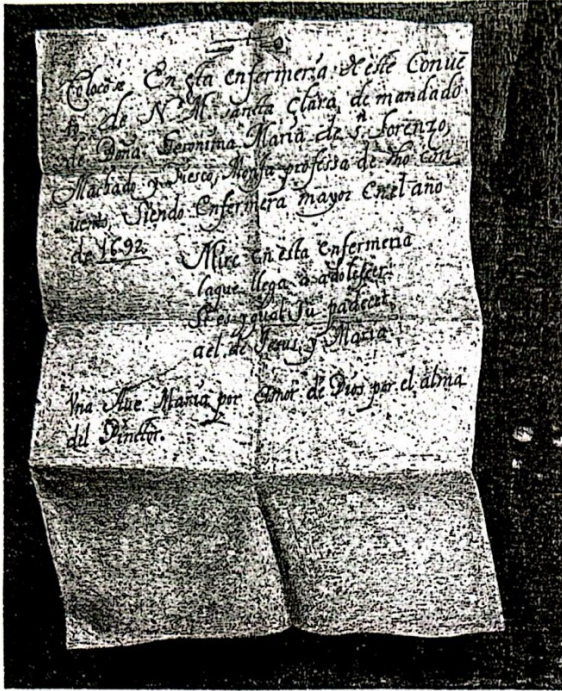 Colocose En esta enfermeria de este Convē
to, de N. M. sancta Clara, de mandado
de Doña Geronima Maria de sn. Lorenzo,
Machado y Fiesco, Monja professa de dho Con-
uento, Siendo Enfermera mayor En el año
de 1692.
Mire En esta Enfermeria
la que llega a adolescer.
Si es ygual su padecer
a el de Jesus, y Maria
Vna Aue Maria por Amor de Dios por el alma
del Pinctor.